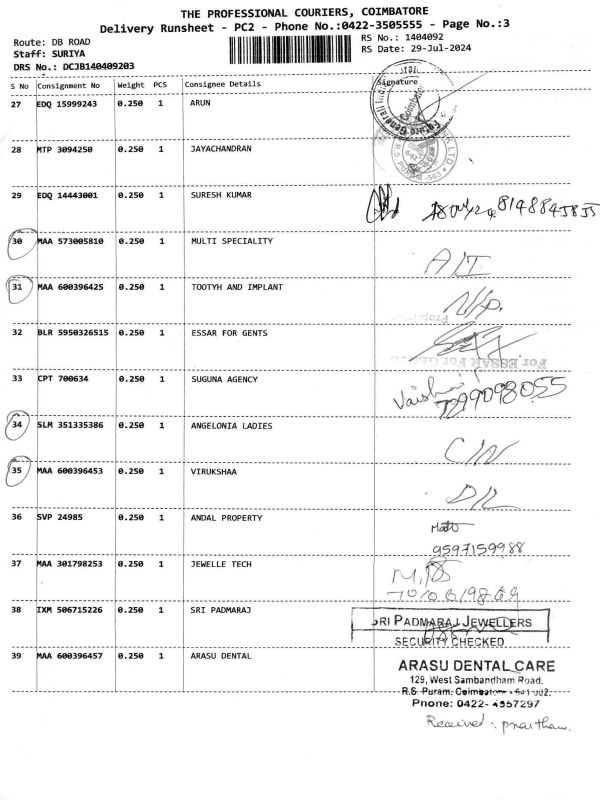 THE PROFESSIONAL COURIERS, COIMBATORE
Delivery Runsheet - PC2 - Phone No.:0422-3505555 - Page No.:3
Route: DB ROAD RS No.: 1404092
Staff: SURIYA RS Date: 29-Jul-2024
DRS No.: DCJB140409203
S No Consignment No Weight PCS Consignee Details Signature
27 EDQ 15999243 0.250 1 ARUN
28 MTP 3094250 0.250 1 JAYACHANDRAN
29 EDQ 14443001 0.250 1 SURESH KUMAR
30 MAA 573005810 0.250 1 MULTI SPECIALITY
31 MAA 600396425 0.250 1 TOOTYH AND IMPLANT
32 BLR 5950326515 0.250 1 ESSAR FOR GENTS
33 CPT 700634 0.250 1 SUGUNA AGENCY
7299098055
34 SLM 351335386 0.250 1 ANGELONIA LADIES
35 MAA 600396453 0.250 1 VIRUKSHAA
D/L
36 SVP 24985 0.250 1 ANDAL PROPERTY
9597159988
37 MAA 301798253 0.250 1 JEWELLE TECH
38 IXM 506715226 0.250 1 SRI PADMARAJ
SRI PADMARAJ JEWELLERS
SECURITY CHECKED
39 MAA 600396457 0.250 1 ARASU DENTAL
ARASU DENTAL CARE
129, West Sambandham Road,
R.S. Puram, Coimbatore - 641 002.
Phone: 0422- 4357297
Received :